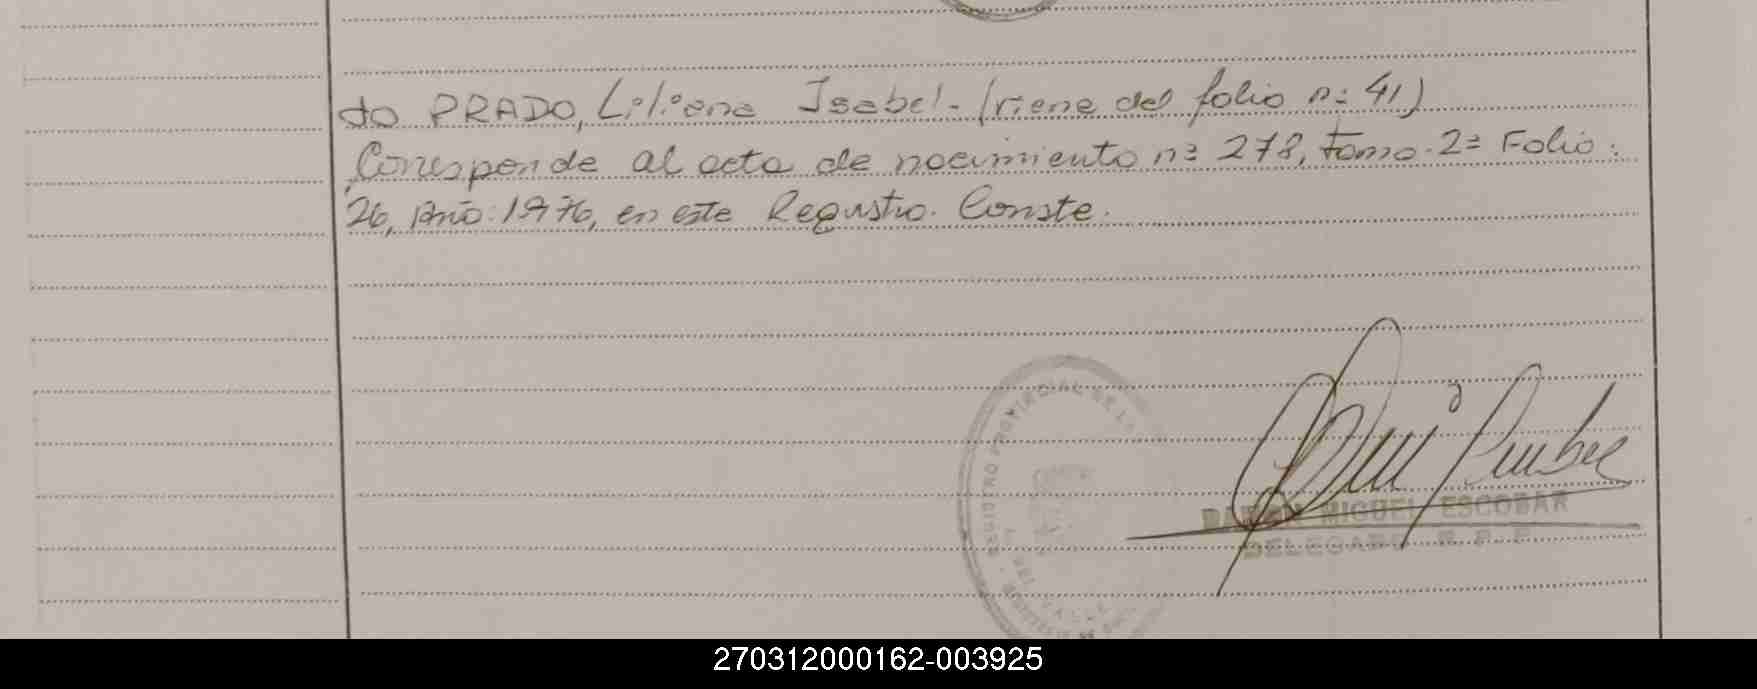 do PRADO, Liliana Isabel - (viene del folio nº 41)
Corresponde al acta de nacimiento nº 278, tomo 2º Folio:
26, Año: 1976, en este Registro. Conste.
REGISTRO PROVINCIAL DE
RAMON MIGUEL ESCOBAR
DELEGADO R. P. P.
270312000162-003925